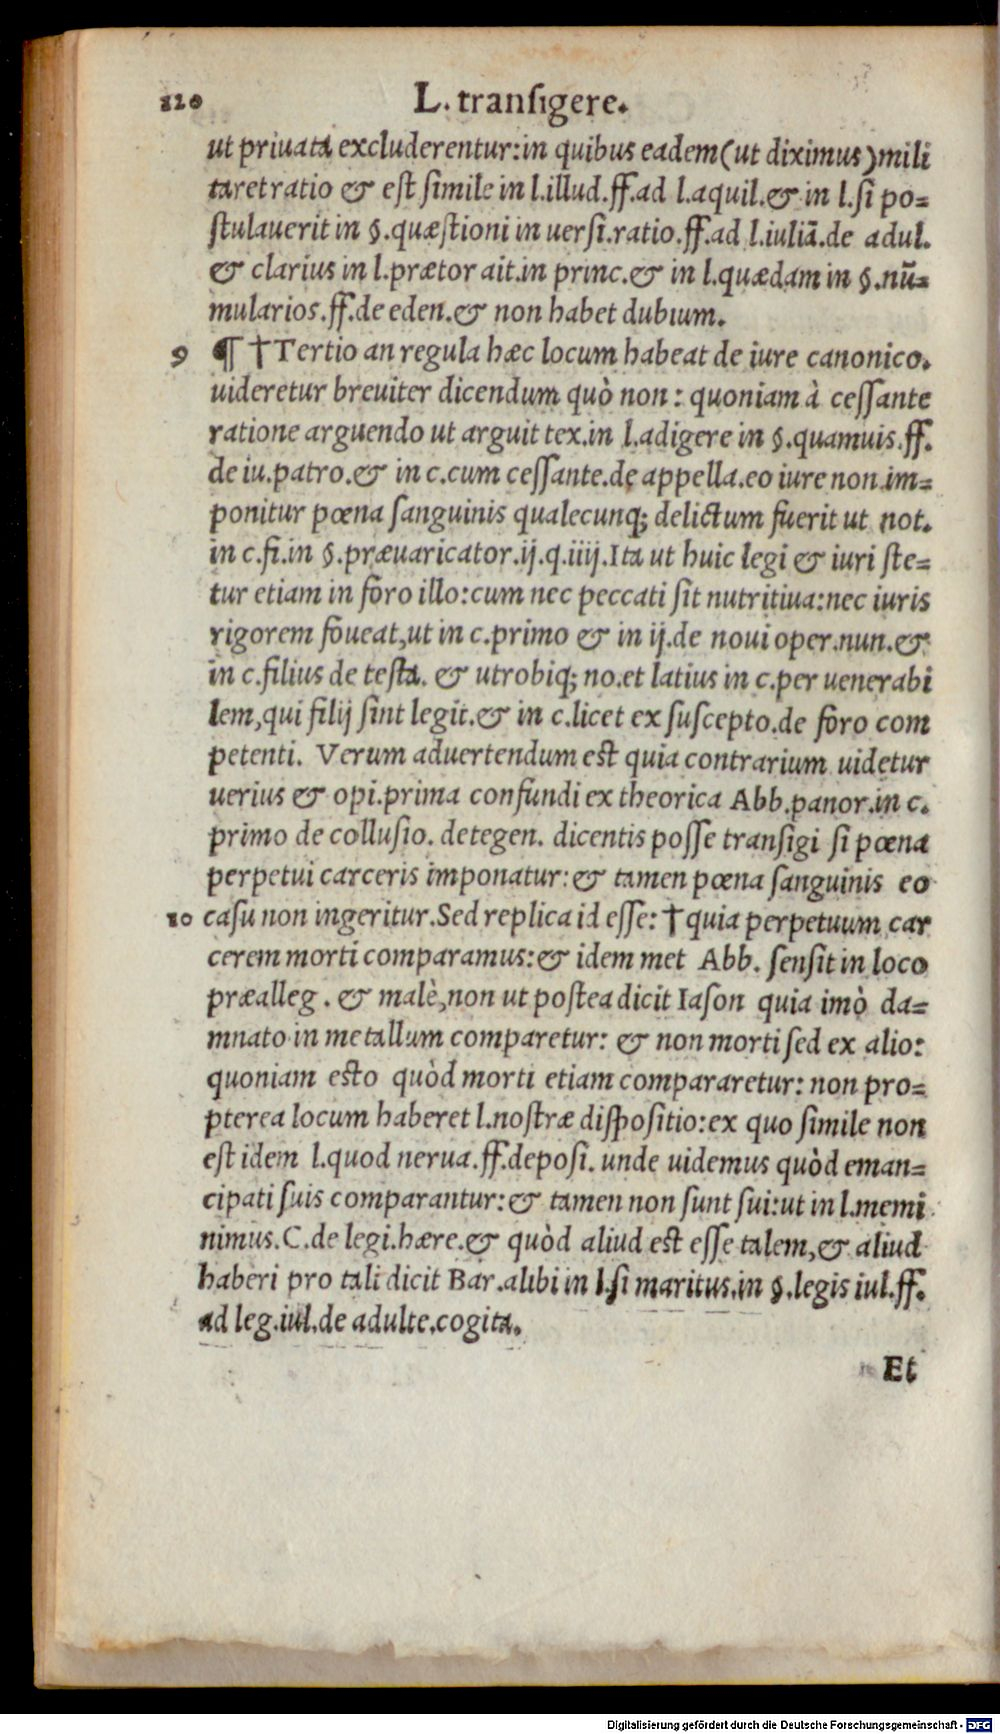 120 L. transigere.
ut priuata excluderentur: in quibus eadem (ut diximus) mili
taret ratio & est simile in l. illud. ff. ad l. aquil. & in l. si po=
stulauerit in §. quæstioni in uersi. ratio. ff. ad l. iuliã. de adul.
& clarius in l. prætor ait. in princ. & in l. quædam in §. nū=
mularios. ff. de eden. & non habet dubium.
9 ¶ † Tertio an regula hæc locum habeat de iure canonico.
uideretur breuiter dicendum quò non: quoniam à cessante
ratione arguendo ut arguit tex. in l. adigere in §. quamuis. ff.
de iu. patro. & in c. cum cessante. de appella. eo iure non im=
ponitur pœna sanguinis qualecunq; delictum fuerit ut not.
in c. fi. in §. præuaricator. ij. q. iiij. Ita ut huic legi & iuri ste=
tur etiam in foro illo: cum nec peccati sit nutritiua: nec iuris
rigorem foueat, ut in c. primo & in ij. de noui oper. nun. &
in c. filius de testa. & utrobiq; no. et latius in c. per uenerabi
lem, qui filij sint legit. & in c. licet ex suscepto. de foro com
petenti. Verum aduertendum est quia contrarium uidetur
uerius & opi. prima confundi ex theorica Abb. panor. in c.
primo de collusio. detegen. dicentis posse transigi si pœna
perpetui carceris imponatur: & tamen pœna sanguinis eo
10 casu non ingeritur. Sed replica id esse: † quia perpetuum car
cerem morti comparamus: & idem met Abb. sensit in loco
præalleg. & malè, non ut postea dicit Iason quia imò da=
mnato in metallum comparetur: & non morti sed ex alio:
quoniam esto quòd morti etiam compararetur: non pro=
pterea locum haberet l. nostræ dispositio: ex quo simile non
est idem l. quod nerua. ff. deposi. unde uidemus quòd eman=
cipati suis comparantur: & tamen non sunt sui: ut in l. memi
nimus. C. de legi. hære. & quòd aliud est esse talem, & aliud
haberi pro tali dicit Bar. alibi in l. si maritus. in §. legis iul. ff.
ad leg. iul. de adulte. cogita.
Et
Digitalisierung gefördert durch die Deutsche Forschungsgemeinschaft - DFG